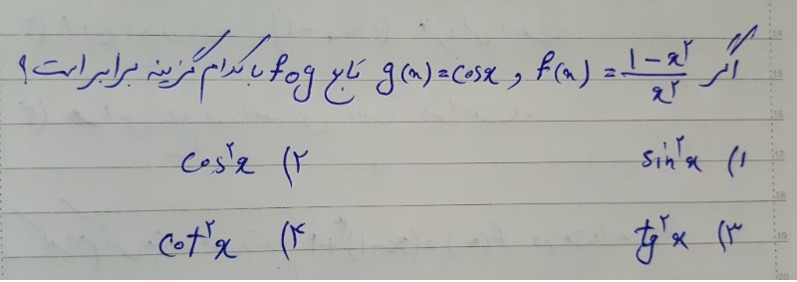 اگر f(x) = (1 - x²)/x² , g(x) = cosx تابع fog با کدام گزینه برابر است ؟
۱) sin²x ۲) cos²x
۳) tg²x ۴) cot²x